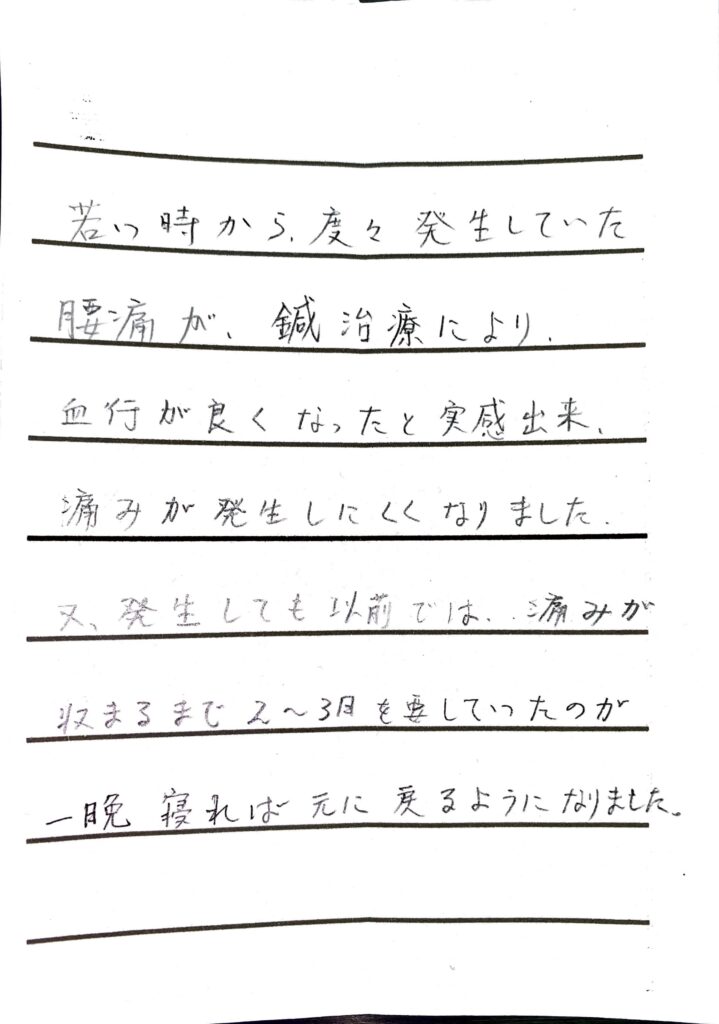 若い時から、度々発生していた
腰痛が、鍼治療により、
血行が良くなったと実感出来、
痛みが発生しにくくなりました。
又、発生しても以前では、痛みが
収まるまで2〜3日を要していったのが
一晩寝れば元に戻るようになりました。